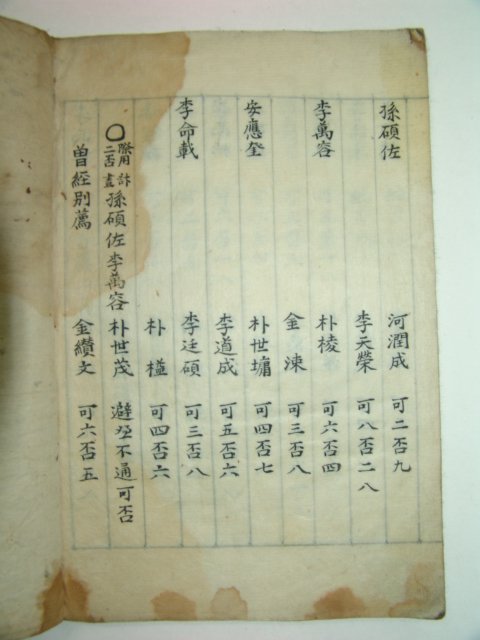 孫碩佐 河潤成 可二否九
李天榮 可八否二八
李萬容 朴棱 可六否四
金涑 可三否八
安應奎 朴世墉 可四否七
李道成 可五否六
李命載 李廷碩 可三否八
朴 可四否六
孫碩佐李萬容朴世茂 避 不通可否
曾經別薦 金纘文 可六否五